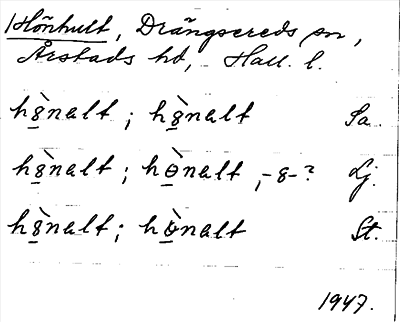 Hönhult, Drängsereds sn,
Årstads hd, Hall. l.
h8̱̀nalt ; h8̱̀nalt Sa.
h8̱̀nalt ; hɵ̱̀nalt, -8-? Lj.
h8̱̀nalt ; hɵ̱̀nalt St.
1947.